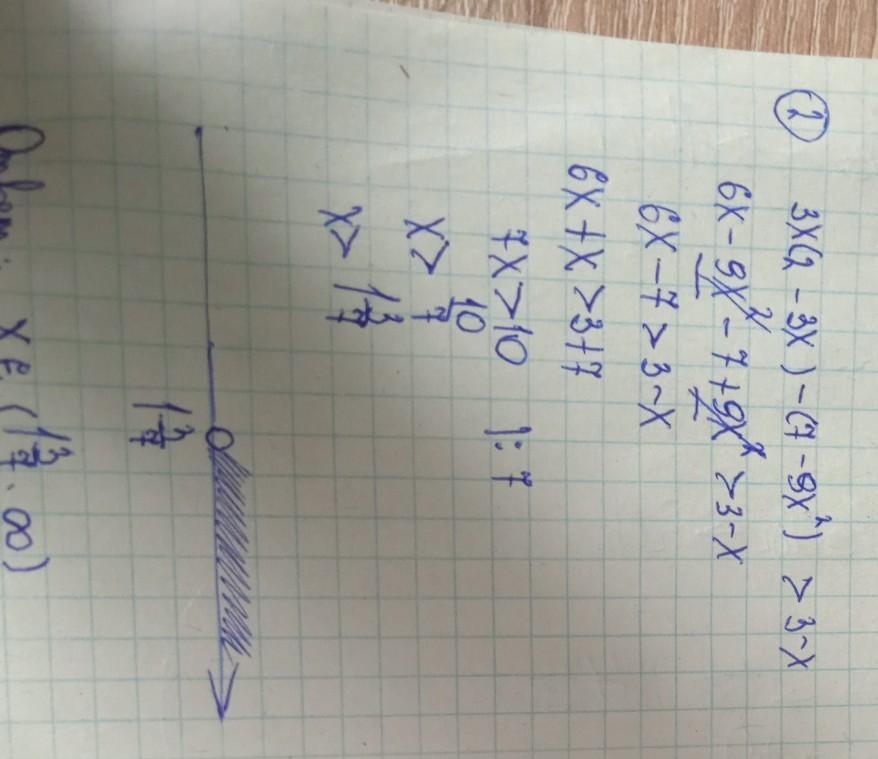 ② 3x(2 - 3x) - (7 - 9x²) > 3 - x
6x - 9x² - 7 + 9x² > 3 - x
6x - 7 > 3 - x
6x + x > 3 + 7
7x > 10 |: 7
x > 10/7
x > 1 3/7
1 3/7
Ответ: x ∈ (1 3/7; ∞)